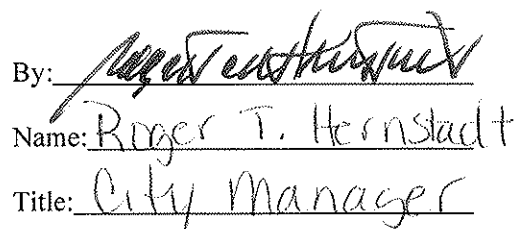 By:
Name: Roger T. Hernstadt
Title: City Manager